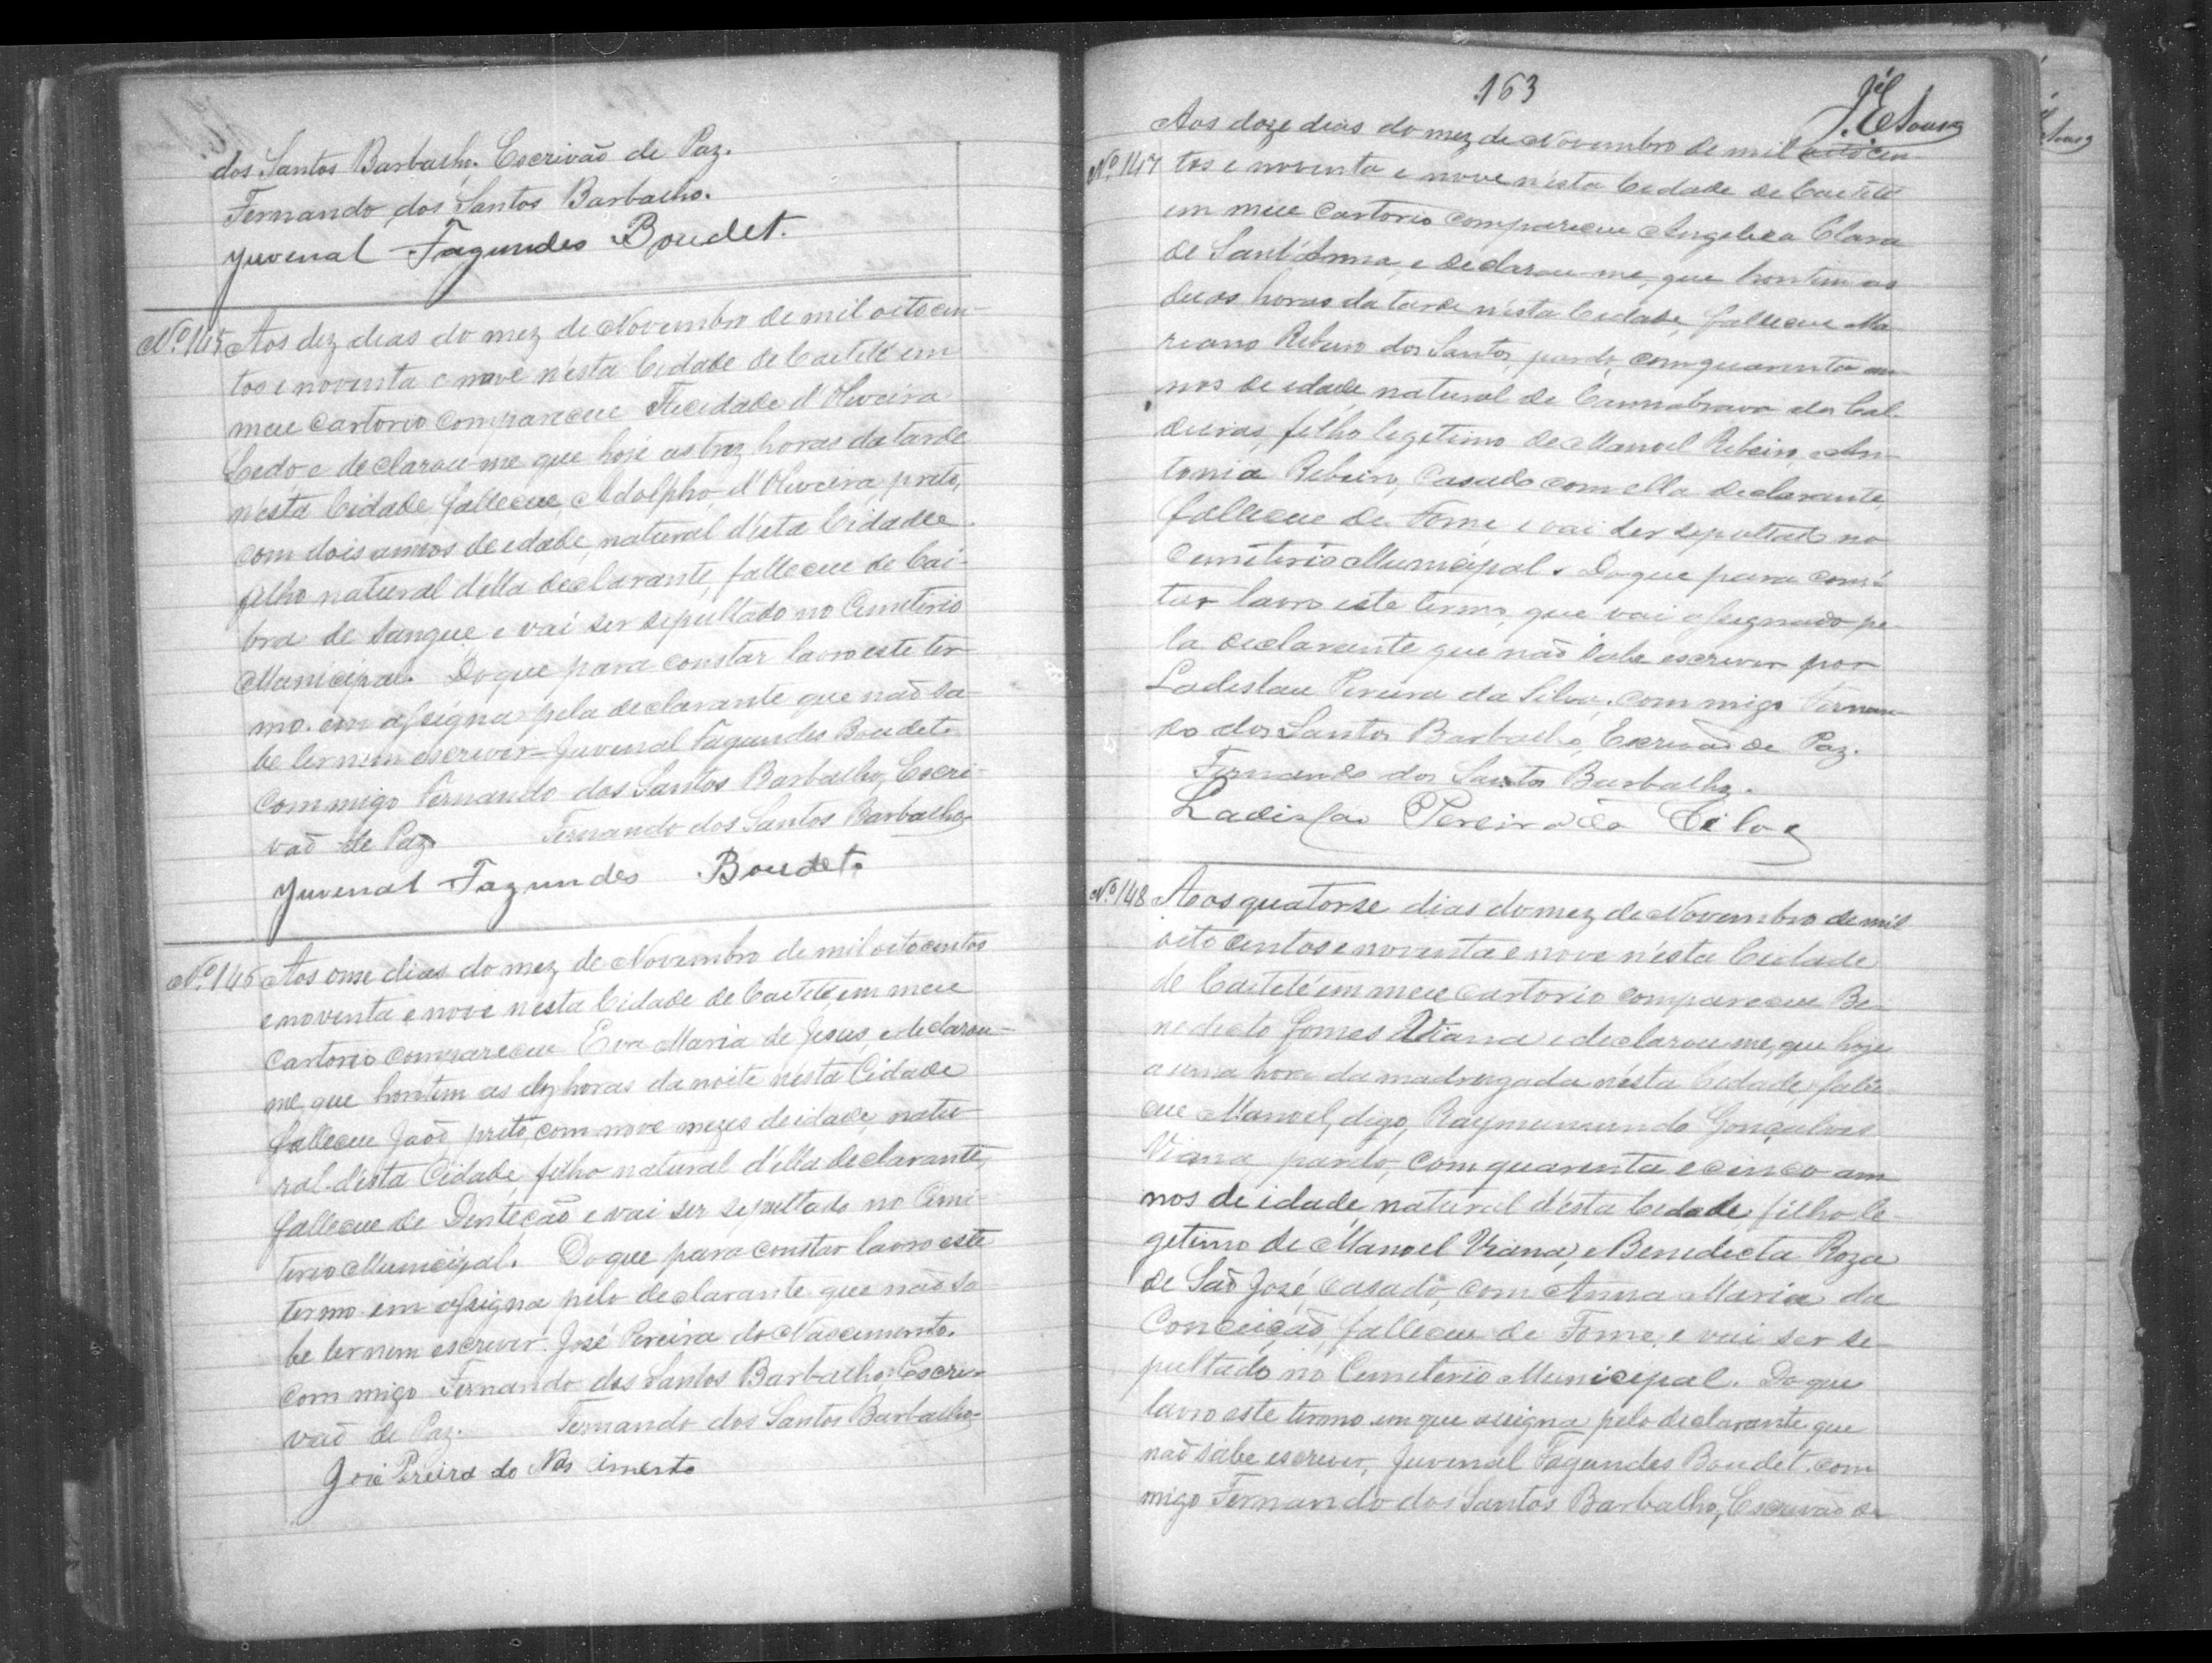 dos Santos Barbalho. Escrivaõ de Paz.
Fernando dos Santos Barbalho.
Juvenal Fagundes Boudet.
Nº 145 Aos dez dias do mez de Novembro de mil oitocen-
tos e noventa e nove n'ésta Cidade de Caeteté em
meu Cartorio compareceu Felecidade d'Oliveira
Ledo, e declarou-me que hoje as trez horas da tarde
n'ésta Cidade falleceu Adolpho d'Oliveira, preto,
com dois annos de edade, natural d'ésta Cidade
filho natural d'élla declarante, falleceu de Cai-
bra de sangue, e vai ser sepultado no Cemeterio
Municipal. Do que para constar lavro este ter-
mo em assigna pela declarante que naõ sa-
be ler nem escrever Juvenal Fagundes Boudet.
Commigo Fernando dos Santos Barbalho, Escri-
vaõ de Paz. Fernando dos Santos Barbalho
Juvenal Fagundes Boudet.
Nº 146 Aos onse dias do mez de Novembro de mil oitocentos
e noventa e nove n'ésta Cidade de Caeteté, em meu
Cartorio compareceu Eva Maria de Jesus, e declarou-
me, que hontem as dez horas da noite n'ésta Cidade
falleceu Joaõ, preto, com nove mezes de idade, natu-
ral d'ésta Cidade, filho natural d'élla declarante,
falleceu de Denteçaõ e vai ser sepultado no Cemi-
terio Municipal. Do que para constar lavro este
termo em assigna pelo declarante que naõ sa-
be ler nem escrever. José Pereira do Nascimento.
Commigo Fernando dos Santos Barbalho, Escri-
vaõ de Paz. Fernando dos Santos Barbalho
José Pereira do Nascimento
163
J. E. Sousa
Aos doze dias do mez de Novembro de mil oitocen-
Nº 147 tos e noventa e nove n'ésta Cidade de Caeteté
em meu Cartorio compareceu Angelica Clara
de Sant'Anna, e declarou-me, que hontem as
duas horas da tarde n'ésta Cidade, falleceu Ma-
riano Ribeiro dos Santos, pardo, com quarenta an-
nos de edade natural de Cannabrava dos Cal-
deiras, filho legetimo de Manoel Ribeiro, e An-
tonia Ribeiro, Casado com ella declarante,
falleceu de Fome, e vai ser sepultado no
Cemiterio Municipal. Do que para cons-
tar lavro este termo, que vai assignado pe-
la declarante que naõ sabe escrever por
Ladislau Pereira da Silva, commigo Fernan-
do dos Santos Barbalho, Escrivaõ de Paz.
Fernando dos Santos Barbalho.
Ladislao Pereira da Cilva
Nº 148 Aos quatorse dias do mez de Novembro de mil
oito centos e noventa e nove n'ésta Cidade
de Caeteté em meu cartorio compareceu Be-
nedicto Gomes Viana e declarou-me, que hoje
a uma hora da madrugada n'ésta Cidade, falle-
ceu Manoel, digo, Raymumundo Gonçalves
Viana, pardo, com quarenta e cinco an-
nos de idade, natural d'ésta Cidade, filho le-
getimo de Manoel Viana, e Benedicta Roza
de Saõ José, casado com Anna Maria da
Conceiçaõ, falleceu de Fome, e vai ser se-
pultado no Cemeterio Municipal. Do que
lavro este termo em que assigna pelo declarante, que
naõ sabe escrever, Juvenal Fagundes Boudet, com
migo Fernando dos Santos Barbalho, Escrivaõ de